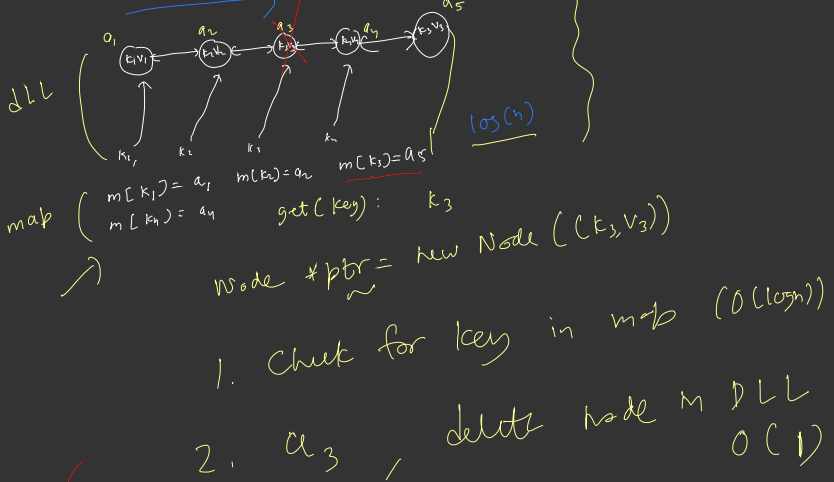 a₁ a₂ a₃ a₄ a₅
dLL K₁V₁ K₂V₂ K₃V₃ K₄V₄ K₃V₃
log(n)
K₁, K₂ K₃ K₄
m[K₁] = a₁ m[K₂] = a₂ m[K₃] = a₅
map m[K₄] = a₄ get(Key): K₃
Node *ptr = new Node((K₃,V₃))
1. Check for Key in map (O(logn))
2. a₃, delete node in DLL
O(1)